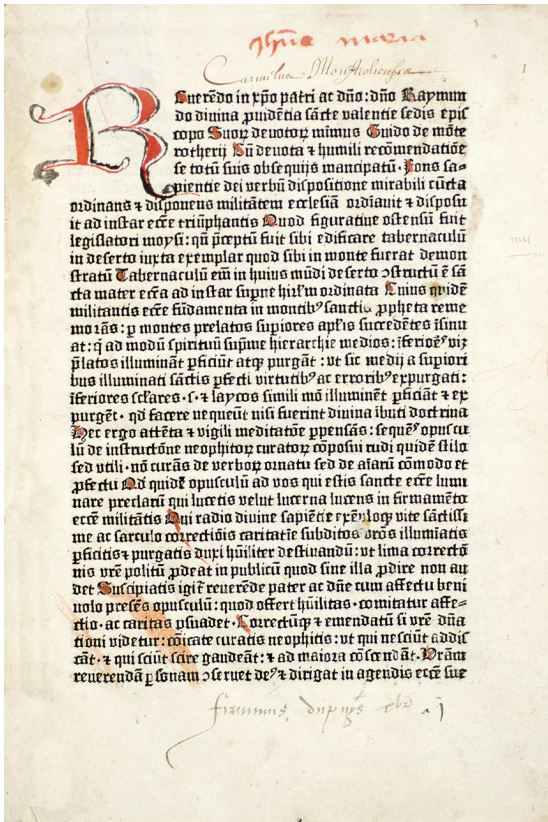 Jhūs maria
Carmelus Monstroliensis
1
REuerēdo in xp̄o patri ac dn̄o: dn̄o Raymun
do divina ꝓuidētia sācte valentie sedis epis
copo Suoꝝ devotoꝝ mīmus Guido de mōte
rotherij Cū devota ⁊ humili recōmendatiōe
se totū suis obsequijs mancipatū · Fons sa⸗
pientie dei verbū dispositione mirabili cūcta
ordinans ⁊ disponens militātem ecclesiā ordīauit ⁊ disposu
it ad instar ecce triūphantis Quod figuratiue ostensū fuit
legislatori moysi: qn̄ p̄ceptū fuit sibi edificare tabernaculū
in deserto iuxta exemplar quod sibi in monte fuerat demon
stratū Tabernaculū em̄ in huius mūdi deserto ɔstructū ē sā
cta mater ecc̄a ad instar supn̄e hirl̄m ordinata Cuius quidē
militantis ecce fūdamenta in montibꝰ sanctis ꝓpheta reme
morās: ꝑ montes prelatos supiores apl̄is succedētes īsinu
at: q̄ ad modū spirituū supm̄e hierarchie medios: īferioēs viꝫ
p̄latos illumināt ꝑficiūt atqꝫ purgāt: vt sic medij a supiori
bus illuminati sāctis ꝑfecti virtutibꝰ ac erroribꝰ expurgati:
īferiores scl̄ares · s · ⁊ laycos simili mō illuminēt ꝑficiāt ⁊ ex
purgēt · qd̄ facere nequeūt nisi fuerint divina ībuti doctrina
Hec ergo attēta ⁊ vigili meditatōe ꝑpensās: sequēs opuscu
lū de instructōne neophitoꝝ curatoꝝ cōposui rudi quidē stilo
sed vtili · nō curās de verboꝝ ornatu sed de aīarū cōmodo et
ꝓfectu Qd̄ quidē opusculū ad vos qui estis sancte ecce lumi
nare preclarū qui lucetis velut lucerna lucens in firmamēto
ecce militātis Qui radio divine sapiētie exēploqꝫ vite sāctissi
me ac sarculo correctiōis caritatīe subditos vr̄os illumīatis
ꝑficitis ⁊ purgatis duxi hūiliter destinandū: vt lima correctō
nis vr̄e politū ꝓdeat in publicū quod sine illa ꝓdire non au
det Suscipiatis igit̄ reverēde pater ac dn̄e cum affectu beni
uolo presēs opusculū: quod offert hūilitas · comitatur affe⸗
ctio · ac caritas ꝑsuadet · Correctūqꝫ ⁊ emendatū si vr̄e dn̄a
tioni videtur: cōicate curatis neophitis: vt qui nesciūt addis
cāt · ⁊ qui sciūt scire gaudeāt: ⁊ ad maiora cōscendāt · Vrām
reverendā ꝑsonam ɔservet deꝰ ⁊ dirigat in agendis ecce sue
firminus dupuys
a j